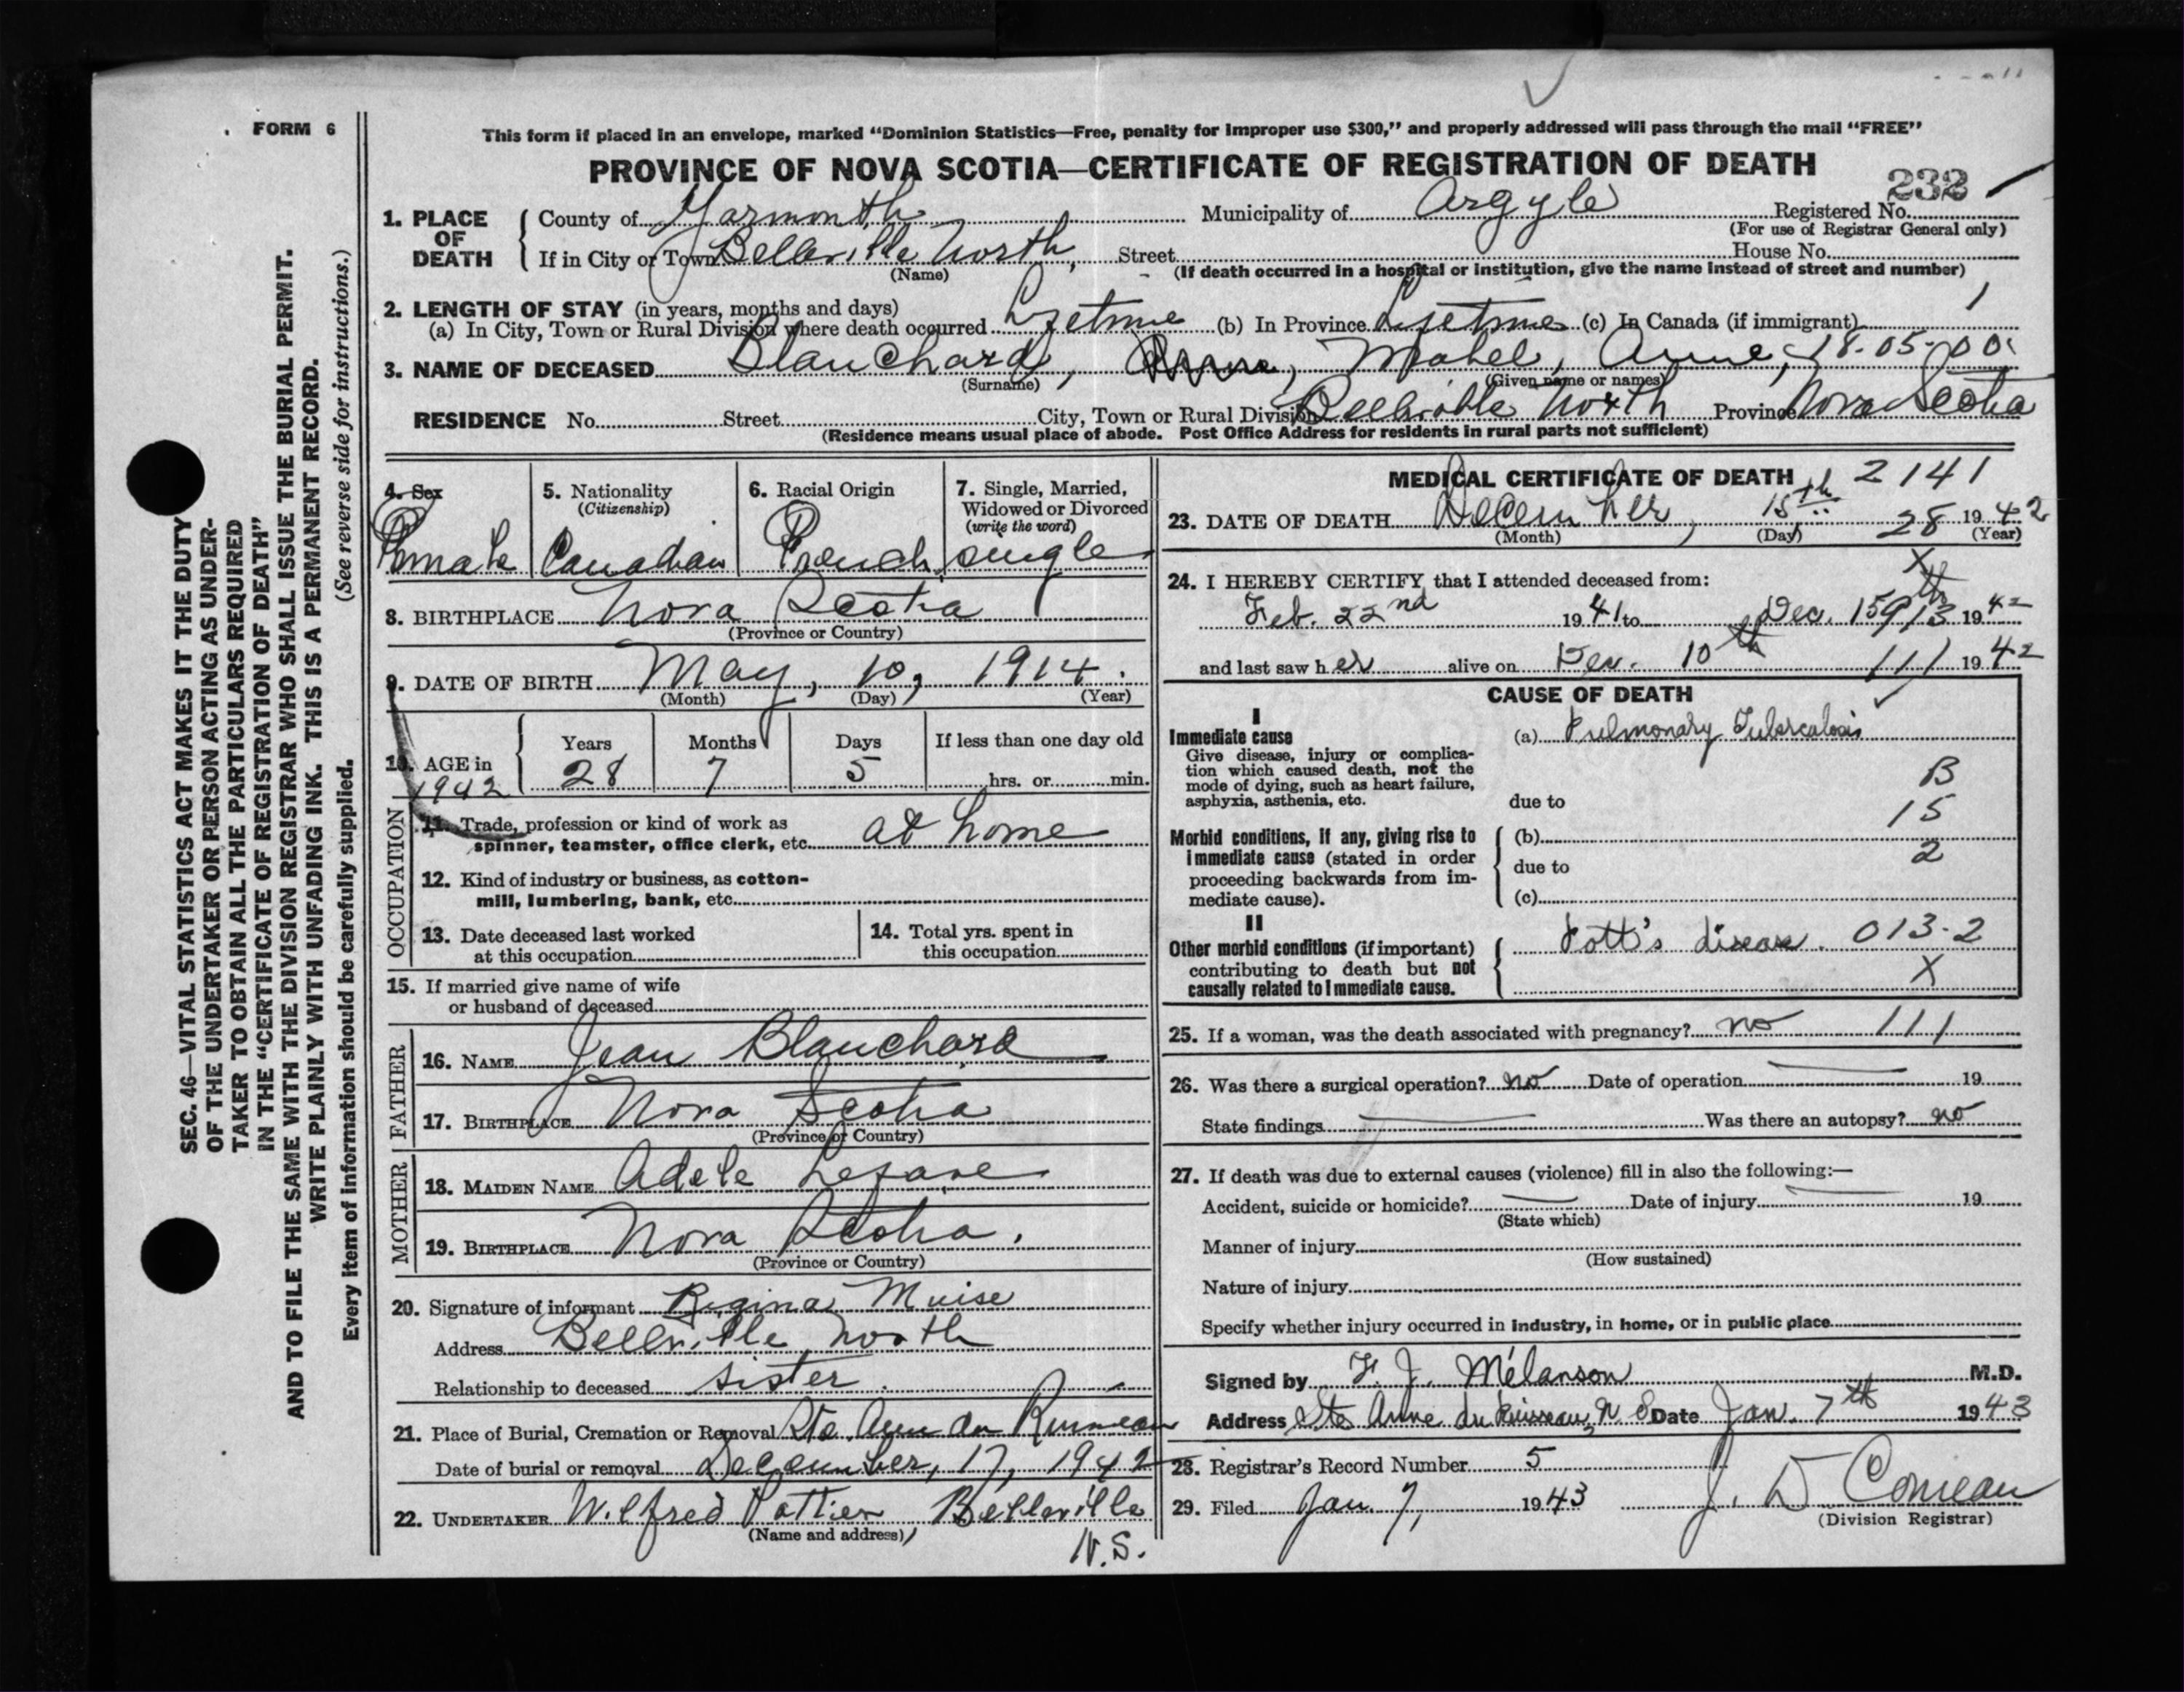 FORM 6
This form if placed in an envelope, marked “Dominion Statistics—Free, penalty for improper use $300,” and properly addressed will pass through the mail “FREE”
PROVINCE OF NOVA SCOTIA—CERTIFICATE OF REGISTRATION OF DEATH
232
1. PLACE OF DEATH County of Yarmouth Municipality of Argyle Registered No.
(For use of Registrar General only)
If in City or Town Bellville North, Street House No.
(Name) (If death occurred in a hospital or institution, give the name instead of street and number)
2. LENGTH OF STAY (in years, months and days)
(a) In City, Town or Rural Division where death occurred Lifetime (b) In Province Lifetime (c) In Canada (if immigrant) 1
3. NAME OF DECEASED Blanchard, Mabel, Anne, 18-05-00
(Surname) (Given name or names)
RESIDENCE No. Street City, Town or Rural Division Bellville North Province Nova Scotia
(Residence means usual place of abode. Post Office Address for residents in rural parts not sufficient)
4. Sex 5. Nationality (Citizenship) 6. Racial Origin 7. Single, Married, Widowed or Divorced (write the word)
Female Canadian French single
8. BIRTHPLACE Nova Scotia
(Province or Country)
9. DATE OF BIRTH May, 10, 1914.
(Month) (Day) (Year)
10. AGE in 1942 Years Months Days If less than one day old
28 7 5 hrs. or min.
OCCUPATION
11. Trade, profession or kind of work as
spinner, teamster, office clerk, etc. at home
12. Kind of industry or business, as cotton-
mill, lumbering, bank, etc.
13. Date deceased last worked
at this occupation
14. Total yrs. spent in
this occupation
15. If married give name of wife
or husband of deceased
FATHER
16. NAME Jean Blanchard
17. BIRTHPLACE Nova Scotia
(Province or Country)
MOTHER
18. MAIDEN NAME Adele Lefave
19. BIRTHPLACE Nova Scotia.
(Province or Country)
20. Signature of informant Regina Muise
Address Bellville North
Relationship to deceased sister.
21. Place of Burial, Cremation or Removal Ste. Ann du Ruisseau
Date of burial or removal December, 17, 1942
22. UNDERTAKER Wilfred Pottier Bellville
(Name and address)
N.S.
MEDICAL CERTIFICATE OF DEATH 2141
23. DATE OF DEATH December, 15th 28 1942
(Month) (Day) (Year)
X
24. I HEREBY CERTIFY that I attended deceased from:
Feb. 22nd 1941 to Dec. 15th 913 1942
and last saw her alive on Dec. 10th 111 1942
CAUSE OF DEATH
I
Immediate cause (a) Pulmonary Tuberculosis
Give disease, injury or complica-
tion which caused death, not the
mode of dying, such as heart failure,
asphyxia, asthenia, etc.
B
due to
15
Morbid conditions, if any, giving rise to (b)
immediate cause (stated in order due to 2
proceeding backwards from im-
mediate cause). (c)
II
Other morbid conditions (if important) Pott's disease. 013-2
contributing to death but not X
causally related to immediate cause.
25. If a woman, was the death associated with pregnancy? no 111
26. Was there a surgical operation? no Date of operation 19
State findings Was there an autopsy? no
27. If death was due to external causes (violence) fill in also the following:—
Accident, suicide or homicide? Date of injury 19
(State which)
Manner of injury
(How sustained)
Nature of injury
Specify whether injury occurred in industry, in home, or in public place
Signed by F. J. Mélanson M.D.
Address Ste Anne du Ruisseau, N S Date Jan. 7th 1943
28. Registrar's Record Number 5
29. Filed Jan. 7, 1943 J. D Comeau
(Division Registrar)
SEC. 46—VITAL STATISTICS ACT MAKES IT THE DUTY
OF THE UNDERTAKER OR PERSON ACTING AS UNDER-
TAKER TO OBTAIN ALL THE PARTICULARS REQUIRED
IN THE “CERTIFICATE OF REGISTRATION OF DEATH”
AND TO FILE THE SAME WITH THE DIVISION REGISTRAR WHO SHALL ISSUE THE BURIAL PERMIT.
WRITE PLAINLY WITH UNFADING INK. THIS IS A PERMANENT RECORD.
Every item of information should be carefully supplied. (See reverse side for instructions.)